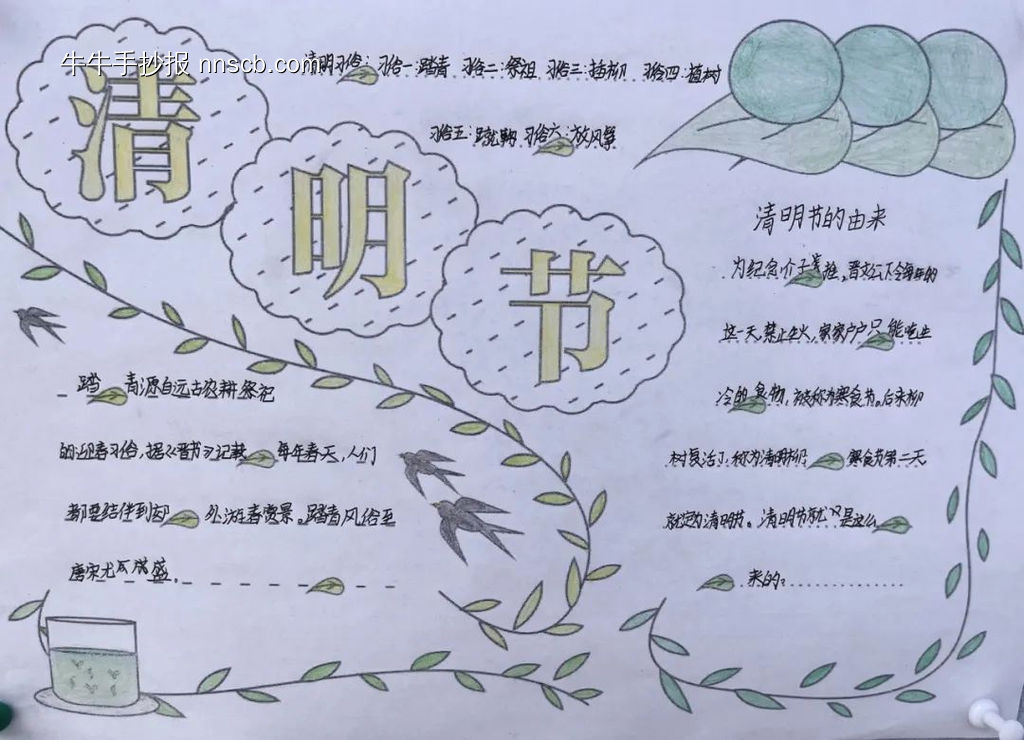 牛牛手抄报 nnscb.com
清明习俗：习俗一：踏青 习俗二：祭祖 习俗三：插柳 习俗四：植树
习俗五：蹴鞠 习俗六：放风筝
清
明
节
踏青源自远古农耕祭祀
的迎春习俗，据《晋书》记载每年春天，人们
都要结伴到郊外游春赏景。踏青风俗至
唐宋尤为盛。
清明节的由来
为纪念介子推，晋文公下令每年的
这一天，禁止生火，家家户户只能吃生
冷的食物，被称为寒食节。后来柳
树复活了，称为清明柳 寒食节第二天
就定为清明节。清明节就是这么
来的：